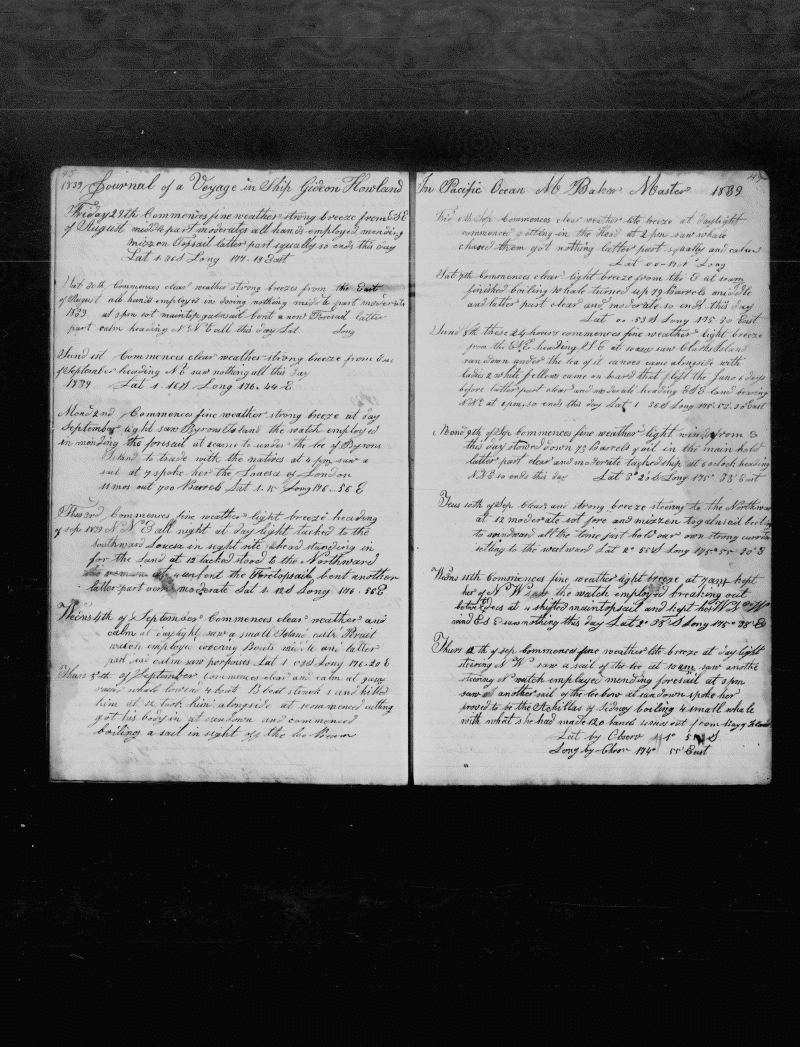 98
1839 Journal of a Voyage in Ship Gideon Howland
Friday 29th Commences fine weather strong breeze from ESE
of August middle part moderates all hands employed meanding
mizzen Topsail latter part squally so ends this day
Lat 1 31 S Long 177. 19 East
Sat 30th Commences clear weather strong breeze from the East
of August all hands employed in doing nothing middle part moderate
1839 at 5 pm sot maintopgalnsail bent a new Foresail latter
part calm heading N N E all this day Lat Long
Sund 1st Commences clear weather strong breeze from
of September heading N E saw nothing all this day
1839 Lat 1. 16 S Long 176. 44 E
Mond 2nd Commences fine weather strong breeze at day
September light saw Byrons Island the watch employed
in mending the foresail at 2 came to under the lee of Byrons
Island to trade with the natives at 4 pm saw a
sail at 7 spoke her the Louesa of London
11 mos out 700 Barrels Lat 1. 15 Long 176. 56 E
Thus 3rd Commences fine weather light breeze heading
of sep 1839 N N E all night at day light tacked to the
southward Louesa in sight rite ahead standing in
for the Land at 12 tacked stord to the Northward
unbent the Foretopsail bent another
latter part very moderate Lat 1. 12 S Long 176. 55 E
Weins 4th of September Commences clear weather and
calm at daylight saw a small Island calld
watch employed covering Boats middle and latter
part calm saw porposes Lat 1 03 S Long 176-20 E
Thurs 5th of September Commences clear and calm at
saw whale lowered 4 boat B boat struck 1 and killed
him at 12 took him alongside at 1 commenced cutting
got his body in at sundown and commenced
boiling a sail in sight off the lee Beam
In Pacific Ocean M Baker Master 1839
Frid 6th Sep Commences clear weather lite breeze at daylight
commenced cutting in the Head at 2 pm saw whale
chased them got nothing latter part squally and calm
Lat 00-no 1 Long
Sat 7th Commences clear light breeze from the E at 10 am
finished boiling Whale turned up 79 Barrels middle
and latter part clear and moderate so ends this day
Lat 00 - 53 S Long 175. 30 East
Sund 8th these 24 hours commences fine weather light breeze
from the E S E heading S E at 10 am saw Clarks Island
ran down under the lea of it canoes came alongside with
ladies 2 whit fellows came on board that left the Juno 6 days
before latter part clear and moderate heading E S E land bearing
N N E at 1 pm, so ends this day Lat 1 36 S Long 175. 52. 15 East
Mond 9th of Sep Commences fine weather light winds from E
this day stowed down 75 barrels of oil in the main hold
latter part clear and moderate tacked ship at 6 o clock heading
N N E so ends this day Lat 3° 2' S Long 175° 33' East
Teus 10th of Sep Clear and strong breeze sterring to the Northwar
at 12 moderate sot fore and mizzen topgalnsail beeting
to windward all the time just hold our own strong current
setting to the westward Lat 2° 55 S Long 175° 55' 30" E
Weins 11th Commences fine weather light breeze at 7 am kept
her of N W spoke the watch employed breaking out
at 4 shifted maintopsail and kept her W b N
and E S E saw nothing this day Lat 2° 38' S Long 175° 38' E
Thurs 12th of sep Commences fine weather lite breeze at day light
steering N W saw a sail of the lee at 10 am saw anothe
steering N watch employed mending foresail at 3 pm
saw another sail of the lee bow at sundown spoke her
proved to be the Achillas of Sidney boiling 4 small whale
with what she had made 120 barrels 4 mos out from
Lat by Observ 1° S
Long by Chron 174° 55' East